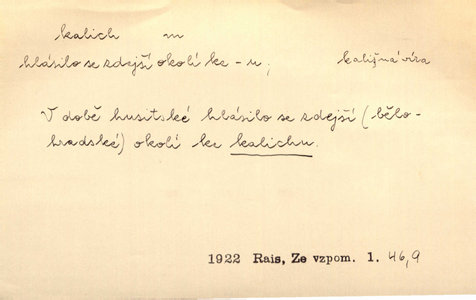 kalich m
hlásilo se zdejší okolí ke -u; kališná víra
V době husitské hlásilo se zdejší (bělo-
hradské) okolí ke kalichu.
1922 Rais, Ze vzpom. 1. 46,9